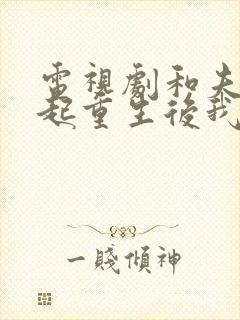 電視劇和夫
起重生後我
一賤傾神